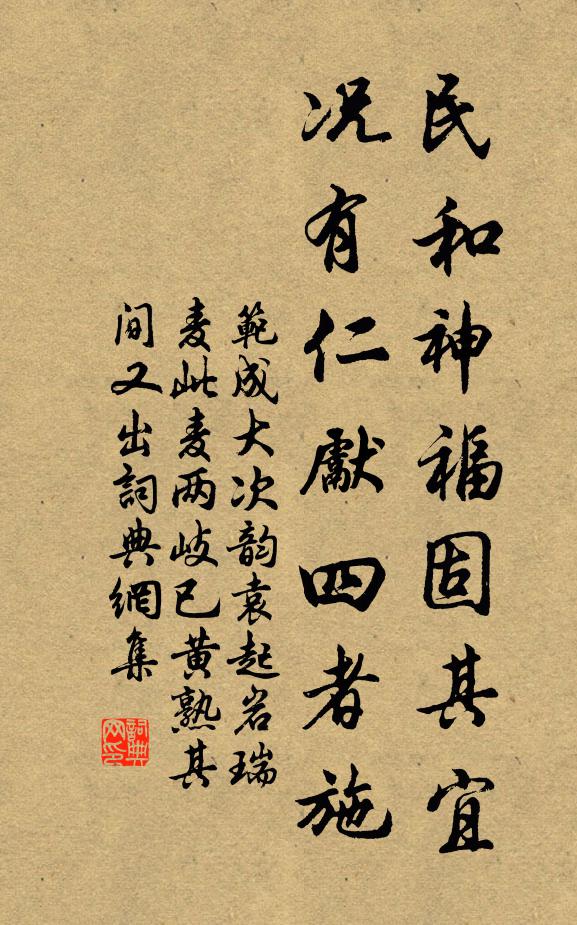 民和神福固其宜
况有仁獻四者施
範成大次韵袁起岩瑞
麦此麦两岐已黄熟其
间又出詞典網集
詞典
网印